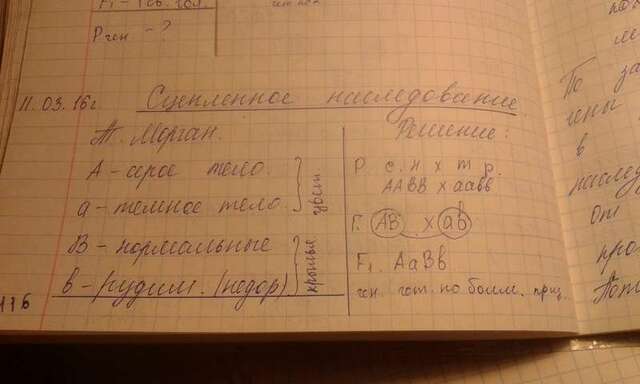 F₁ - 1 св. гол.
Pген - ?
11.03.16г Сцепленное наследование.
Т. Морган.
А - серое тело.
а - темное тело.
цвет
В - нормальные
в - рудим. (недор)
крылья
116
Решение:
P с. н х т р.
ААВВ х аавв
Г. АВ х ав
F₁ АаВв
ген. гет. по
По за
гены
в
наслед
от
про
Пот